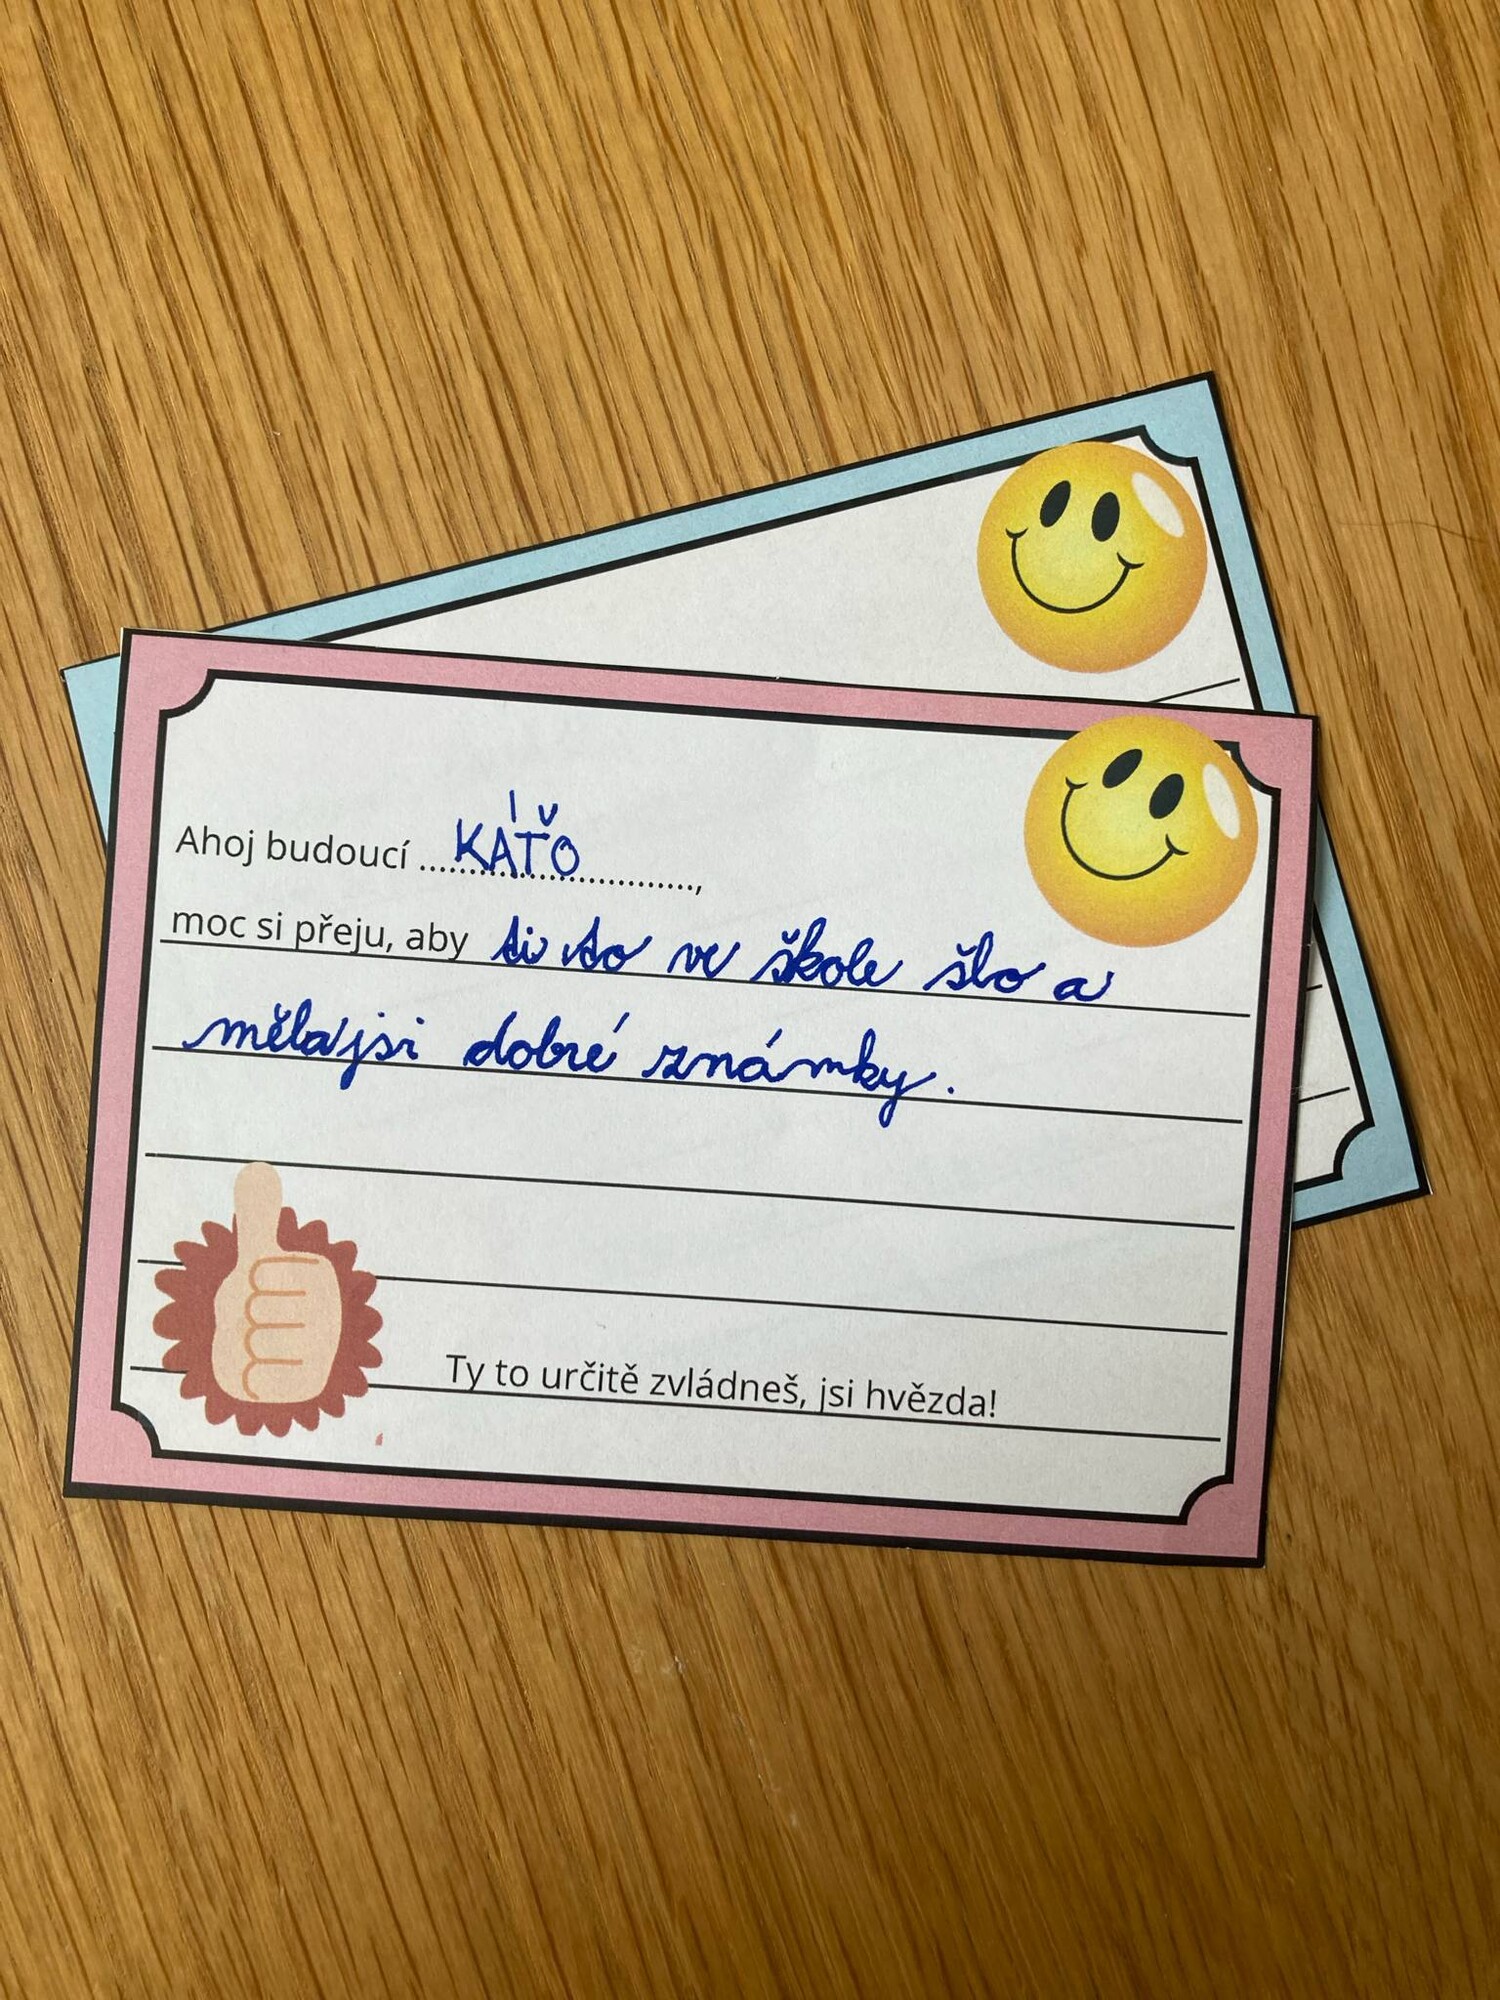 Ahoj budoucí ....KÁŤO..............,
moc si přeju, aby ti to ve škole šlo a
měla jsi dobré známky.
Ty to určitě zvládneš, jsi hvězda!